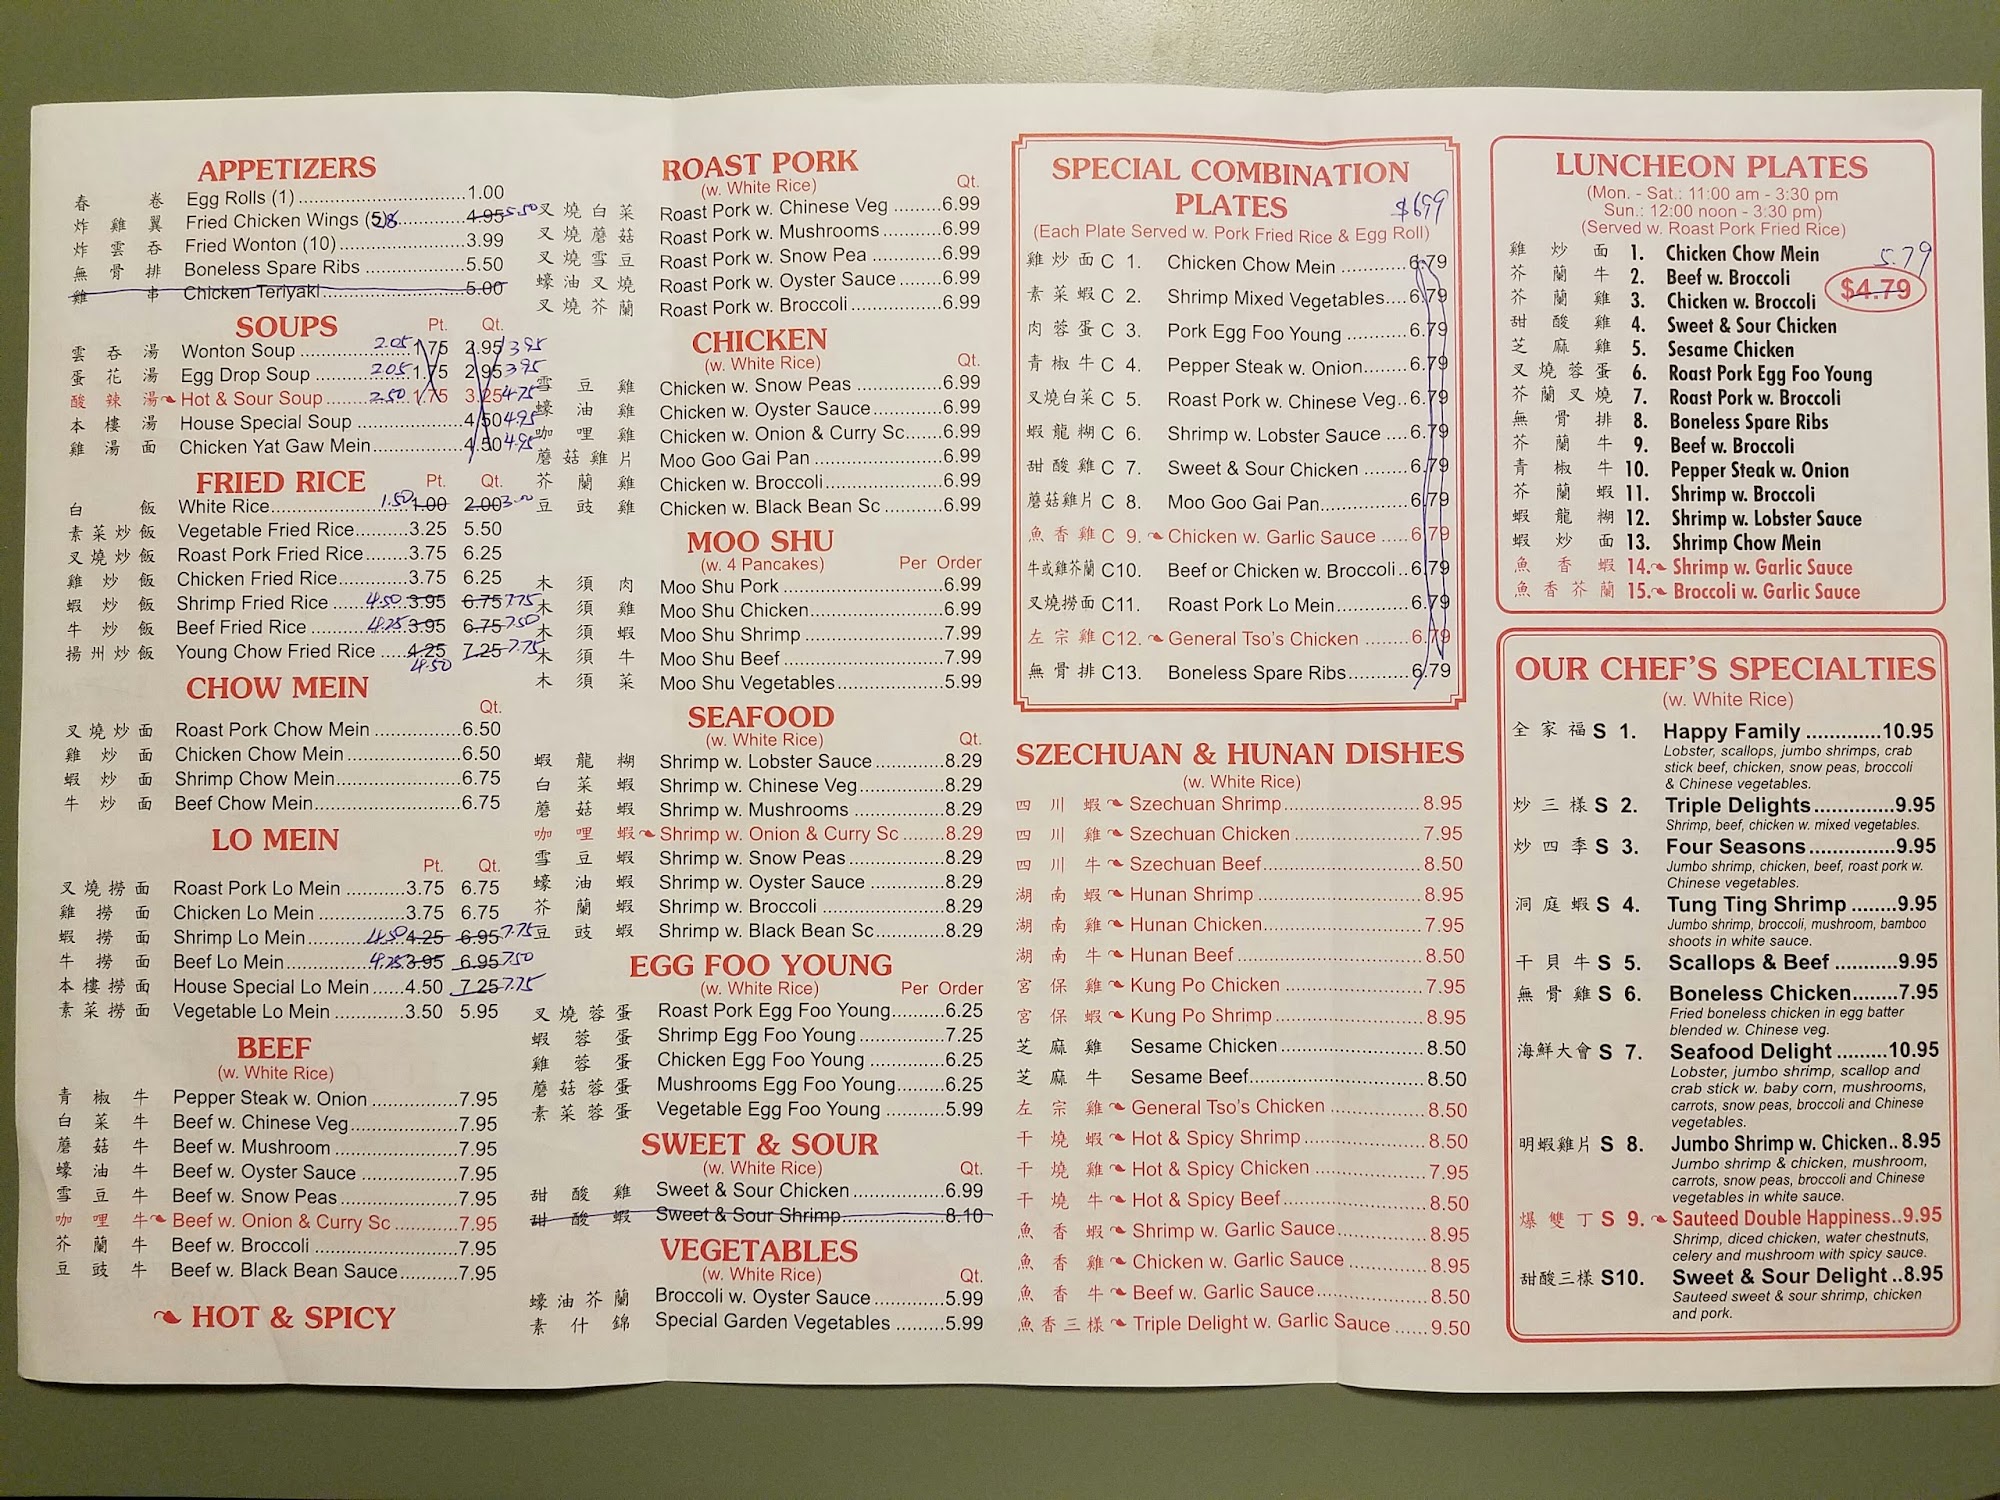 APPETIZERS
春 卷 Egg Rolls (1) 1.00
炸 雞 翼 Fried Chicken Wings (5) 8 4.95 5.50
炸 雲 吞 Fried Wonton (10) 3.99
無 骨 排 Boneless Spare Ribs 5.50
雞 串 Chicken Teriyaki 5.00
SOUPS Pt. Qt.
雲 吞 湯 Wonton Soup 2.05 1.75 2.95 3.95
蛋 花 湯 Egg Drop Soup 2.05 1.75 2.95 3.95
酸 辣 湯 Hot & Sour Soup 2.50 1.75 3.25 4.75
本 樓 湯 House Special Soup 4.50 4.95
雞 湯 面 Chicken Yat Gaw Mein 4.50 4.95
FRIED RICE Pt. Qt.
白 飯 White Rice 1.50 1.00 2.00 3.00
素 菜 炒 飯 Vegetable Fried Rice 3.25 5.50
叉 燒 炒 飯 Roast Pork Fried Rice 3.75 6.25
雞 炒 飯 Chicken Fried Rice 3.75 6.25
蝦 炒 飯 Shrimp Fried Rice 4.50 3.95 6.75 7.75
牛 炒 飯 Beef Fried Rice 4.25 3.95 6.75 7.50
揚 州 炒 飯 Young Chow Fried Rice 4.25 7.25 7.75
4.50
CHOW MEIN
Qt.
叉 燒 炒 面 Roast Pork Chow Mein 6.50
雞 炒 面 Chicken Chow Mein 6.50
蝦 炒 面 Shrimp Chow Mein 6.75
牛 炒 面 Beef Chow Mein 6.75
LO MEIN
Pt. Qt.
叉 燒 撈 面 Roast Pork Lo Mein 3.75 6.75
雞 撈 面 Chicken Lo Mein 3.75 6.75
蝦 撈 面 Shrimp Lo Mein 4.50 4.25 6.95 7.75
牛 撈 面 Beef Lo Mein 4.25 3.95 6.95 7.50
本 樓 撈 面 House Special Lo Mein 4.50 7.25 7.75
素 菜 撈 面 Vegetable Lo Mein 3.50 5.95
BEEF
(w. White Rice)
青 椒 牛 Pepper Steak w. Onion 7.95
白 菜 牛 Beef w. Chinese Veg 7.95
蘑 菇 牛 Beef w. Mushroom 7.95
蠔 油 牛 Beef w. Oyster Sauce 7.95
雪 豆 牛 Beef w. Snow Peas 7.95
咖 哩 牛 Beef w. Onion & Curry Sc 7.95
芥 蘭 牛 Beef w. Broccoli 7.95
豆 豉 牛 Beef w. Black Bean Sauce 7.95
HOT & SPICY
ROAST PORK
(w. White Rice) Qt.
叉 燒 白 菜 Roast Pork w. Chinese Veg 6.99
叉 燒 蘑 菇 Roast Pork w. Mushrooms 6.99
叉 燒 雪 豆 Roast Pork w. Snow Pea 6.99
蠔 油 叉 燒 Roast Pork w. Oyster Sauce 6.99
叉 燒 芥 蘭 Roast Pork w. Broccoli 6.99
CHICKEN
(w. White Rice) Qt.
雪 豆 雞 Chicken w. Snow Peas 6.99
蠔 油 雞 Chicken w. Oyster Sauce 6.99
咖 哩 雞 Chicken w. Onion & Curry Sc 6.99
蘑 菇 雞 片 Moo Goo Gai Pan 6.99
芥 蘭 雞 Chicken w. Broccoli 6.99
豆 豉 雞 Chicken w. Black Bean Sc 6.99
MOO SHU
(w. 4 Pancakes) Per Order
木 須 肉 Moo Shu Pork 6.99
木 須 雞 Moo Shu Chicken 6.99
木 須 蝦 Moo Shu Shrimp 7.99
木 須 牛 Moo Shu Beef 7.99
木 須 菜 Moo Shu Vegetables 5.99
SEAFOOD
(w. White Rice) Qt.
蝦 龍 糊 Shrimp w. Lobster Sauce 8.29
白 菜 蝦 Shrimp w. Chinese Veg 8.29
蘑 菇 蝦 Shrimp w. Mushrooms 8.29
咖 哩 蝦 Shrimp w. Onion & Curry Sc 8.29
雪 豆 蝦 Shrimp w. Snow Peas 8.29
蠔 油 蝦 Shrimp w. Oyster Sauce 8.29
芥 蘭 蝦 Shrimp w. Broccoli 8.29
豆 豉 蝦 Shrimp w. Black Bean Sc 8.29
EGG FOO YOUNG
(w. White Rice) Per Order
叉 燒 蓉 蛋 Roast Pork Egg Foo Young 6.25
蝦 蓉 蛋 Shrimp Egg Foo Young 7.25
雞 蓉 蛋 Chicken Egg Foo Young 6.25
蘑 菇 蓉 蛋 Mushrooms Egg Foo Young 6.25
素 菜 蓉 蛋 Vegetable Egg Foo Young 5.99
SWEET & SOUR
(w. White Rice) Qt.
甜 酸 雞 Sweet & Sour Chicken 6.99
甜 酸 蝦 Sweet & Sour Shrimp 8.10
VEGETABLES
(w. White Rice) Qt.
蠔 油 芥 蘭 Broccoli w. Oyster Sauce 5.99
素 什 錦 Special Garden Vegetables 5.99
SPECIAL COMBINATION
PLATES $6.99
(Each Plate Served w. Pork Fried Rice & Egg Roll)
雞 炒 面 C 1. Chicken Chow Mein 6.79
素 菜 蝦 C 2. Shrimp Mixed Vegetables 6.79
肉 蓉 蛋 C 3. Pork Egg Foo Young 6.79
青 椒 牛 C 4. Pepper Steak w. Onion 6.79
叉燒白菜 C 5. Roast Pork w. Chinese Veg 6.79
蝦 龍 糊 C 6. Shrimp w. Lobster Sauce 6.79
甜 酸 雞 C 7. Sweet & Sour Chicken 6.79
蘑菇雞片 C 8. Moo Goo Gai Pan 6.79
魚 香 雞 C 9. Chicken w. Garlic Sauce 6.79
牛或雞芥蘭 C10. Beef or Chicken w. Broccoli 6.79
叉燒撈面 C11. Roast Pork Lo Mein 6.79
左 宗 雞 C12. General Tso's Chicken 6.79
無 骨 排 C13. Boneless Spare Ribs 6.79
SZECHUAN & HUNAN DISHES
(w. White Rice)
四 川 蝦 Szechuan Shrimp 8.95
四 川 雞 Szechuan Chicken 7.95
四 川 牛 Szechuan Beef 8.50
湖 南 蝦 Hunan Shrimp 8.95
湖 南 雞 Hunan Chicken 7.95
湖 南 牛 Hunan Beef 8.50
宮 保 雞 Kung Po Chicken 7.95
宮 保 蝦 Kung Po Shrimp 8.95
芝 麻 雞 Sesame Chicken 8.50
芝 麻 牛 Sesame Beef 8.50
左 宗 雞 General Tso's Chicken 8.50
干 燒 蝦 Hot & Spicy Shrimp 8.50
干 燒 雞 Hot & Spicy Chicken 7.95
干 燒 牛 Hot & Spicy Beef 8.50
魚 香 蝦 Shrimp w. Garlic Sauce 8.95
魚 香 雞 Chicken w. Garlic Sauce 8.95
魚 香 牛 Beef w. Garlic Sauce 8.50
魚 香 三 樣 Triple Delight w. Garlic Sauce 9.50
LUNCHEON PLATES
(Mon. - Sat.: 11:00 am - 3:30 pm
Sun.: 12:00 noon - 3:30 pm)
(Served w. Roast Pork Fried Rice)
雞 炒 面 1. Chicken Chow Mein 5.79
芥 蘭 牛 2. Beef w. Broccoli $4.79
芥 蘭 雞 3. Chicken w. Broccoli
甜 酸 雞 4. Sweet & Sour Chicken
芝 麻 雞 5. Sesame Chicken
叉 燒 蓉 蛋 6. Roast Pork Egg Foo Young
芥 蘭 叉 燒 7. Roast Pork w. Broccoli
無 骨 排 8. Boneless Spare Ribs
芥 蘭 牛 9. Beef w. Broccoli
青 椒 牛 10. Pepper Steak w. Onion
芥 蘭 蝦 11. Shrimp w. Broccoli
蝦 龍 糊 12. Shrimp w. Lobster Sauce
蝦 炒 面 13. Shrimp Chow Mein
魚 香 蝦 14. Shrimp w. Garlic Sauce
魚 香 芥 蘭 15. Broccoli w. Garlic Sauce
OUR CHEF'S SPECIALTIES
(w. White Rice)
全 家 福 S 1. Happy Family 10.95
Lobster, scallops, jumbo shrimps, crab
stick beef, chicken, snow peas, broccoli
& Chinese vegetables.
炒 三 樣 S 2. Triple Delights 9.95
Shrimp, beef, chicken w. mixed vegetables.
炒 四 季 S 3. Four Seasons 9.95
Jumbo shrimp, chicken, beef, roast pork w.
Chinese vegetables.
洞 庭 蝦 S 4. Tung Ting Shrimp 9.95
Jumbo shrimp, broccoli, mushroom, bamboo
shoots in white sauce.
干 貝 牛 S 5. Scallops & Beef 9.95
無 骨 雞 S 6. Boneless Chicken 7.95
Fried boneless chicken in egg batter
blended w. Chinese veg.
海鮮大會 S 7. Seafood Delight 10.95
Lobster, jumbo shrimp, scallop and
crab stick w. baby corn, mushrooms,
carrots, snow peas, broccoli and Chinese
vegetables.
明蝦雞片 S 8. Jumbo Shrimp w. Chicken 8.95
Jumbo shrimp & chicken, mushroom,
carrots, snow peas, broccoli and Chinese
vegetables in white sauce.
爆 雙 丁 S 9. Sauteed Double Happiness 9.95
Shrimp, diced chicken, water chestnuts,
celery and mushroom with spicy sauce.
甜酸三樣 S10. Sweet & Sour Delight 8.95
Sauteed sweet & sour shrimp, chicken
and pork.